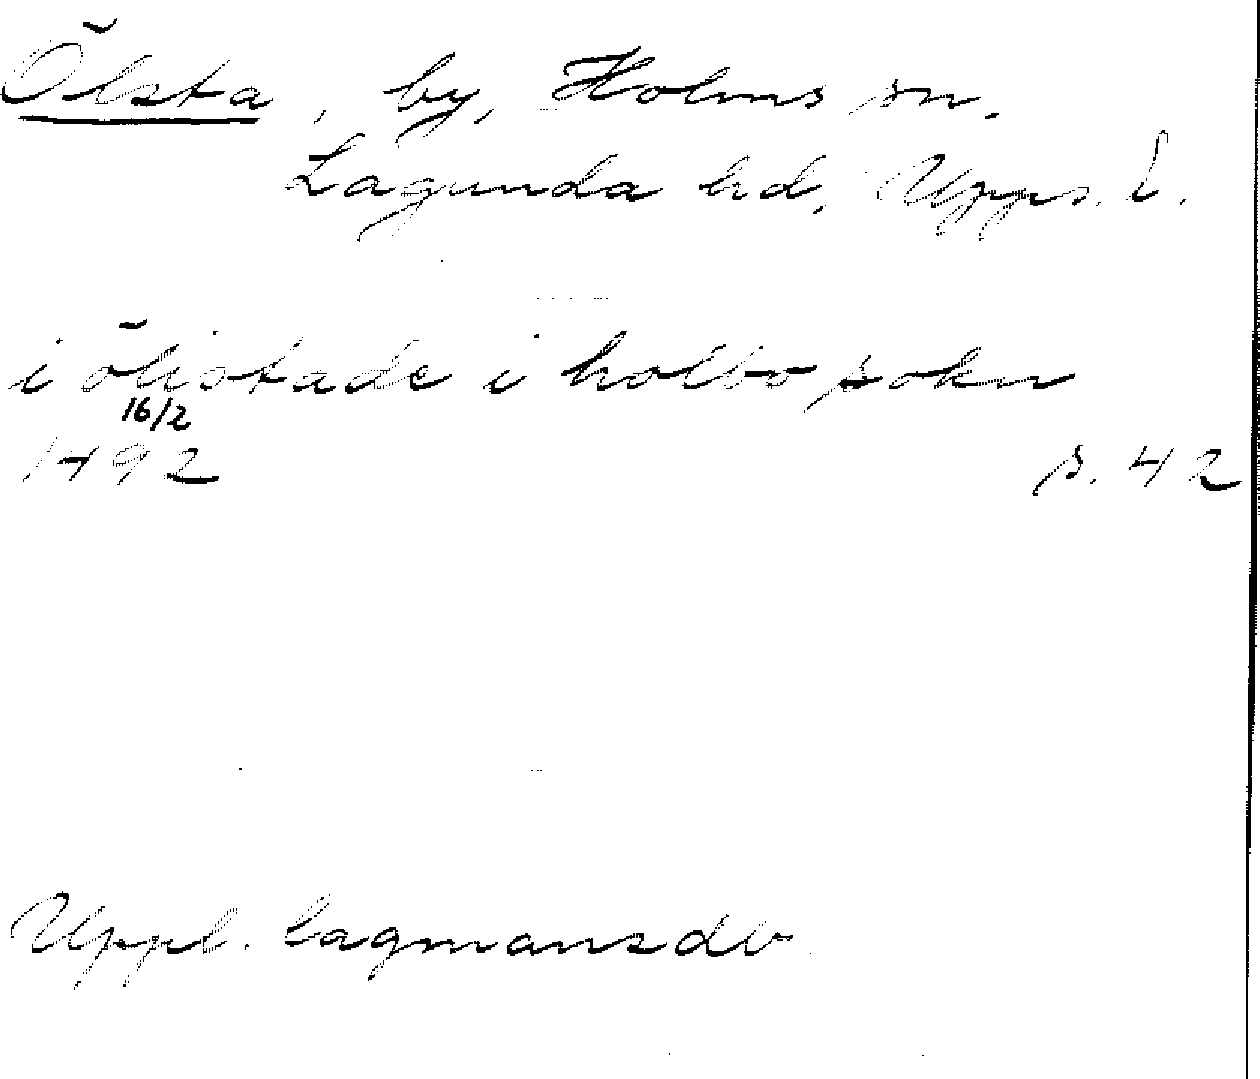 Ölsta, by, Holms sn.
Lagunda hd, Upps. l.
i ölistade i holbo sokn
16/2
1492 s. 42
Uppl. lagmansdb